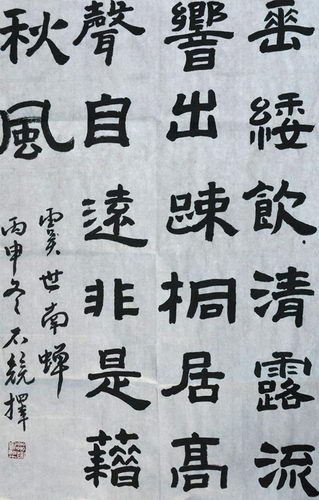 垂緌飲清露流
響出踈桐居高
聲自遠非是藉
秋風
虞世南蟬
丙申冬石競擇